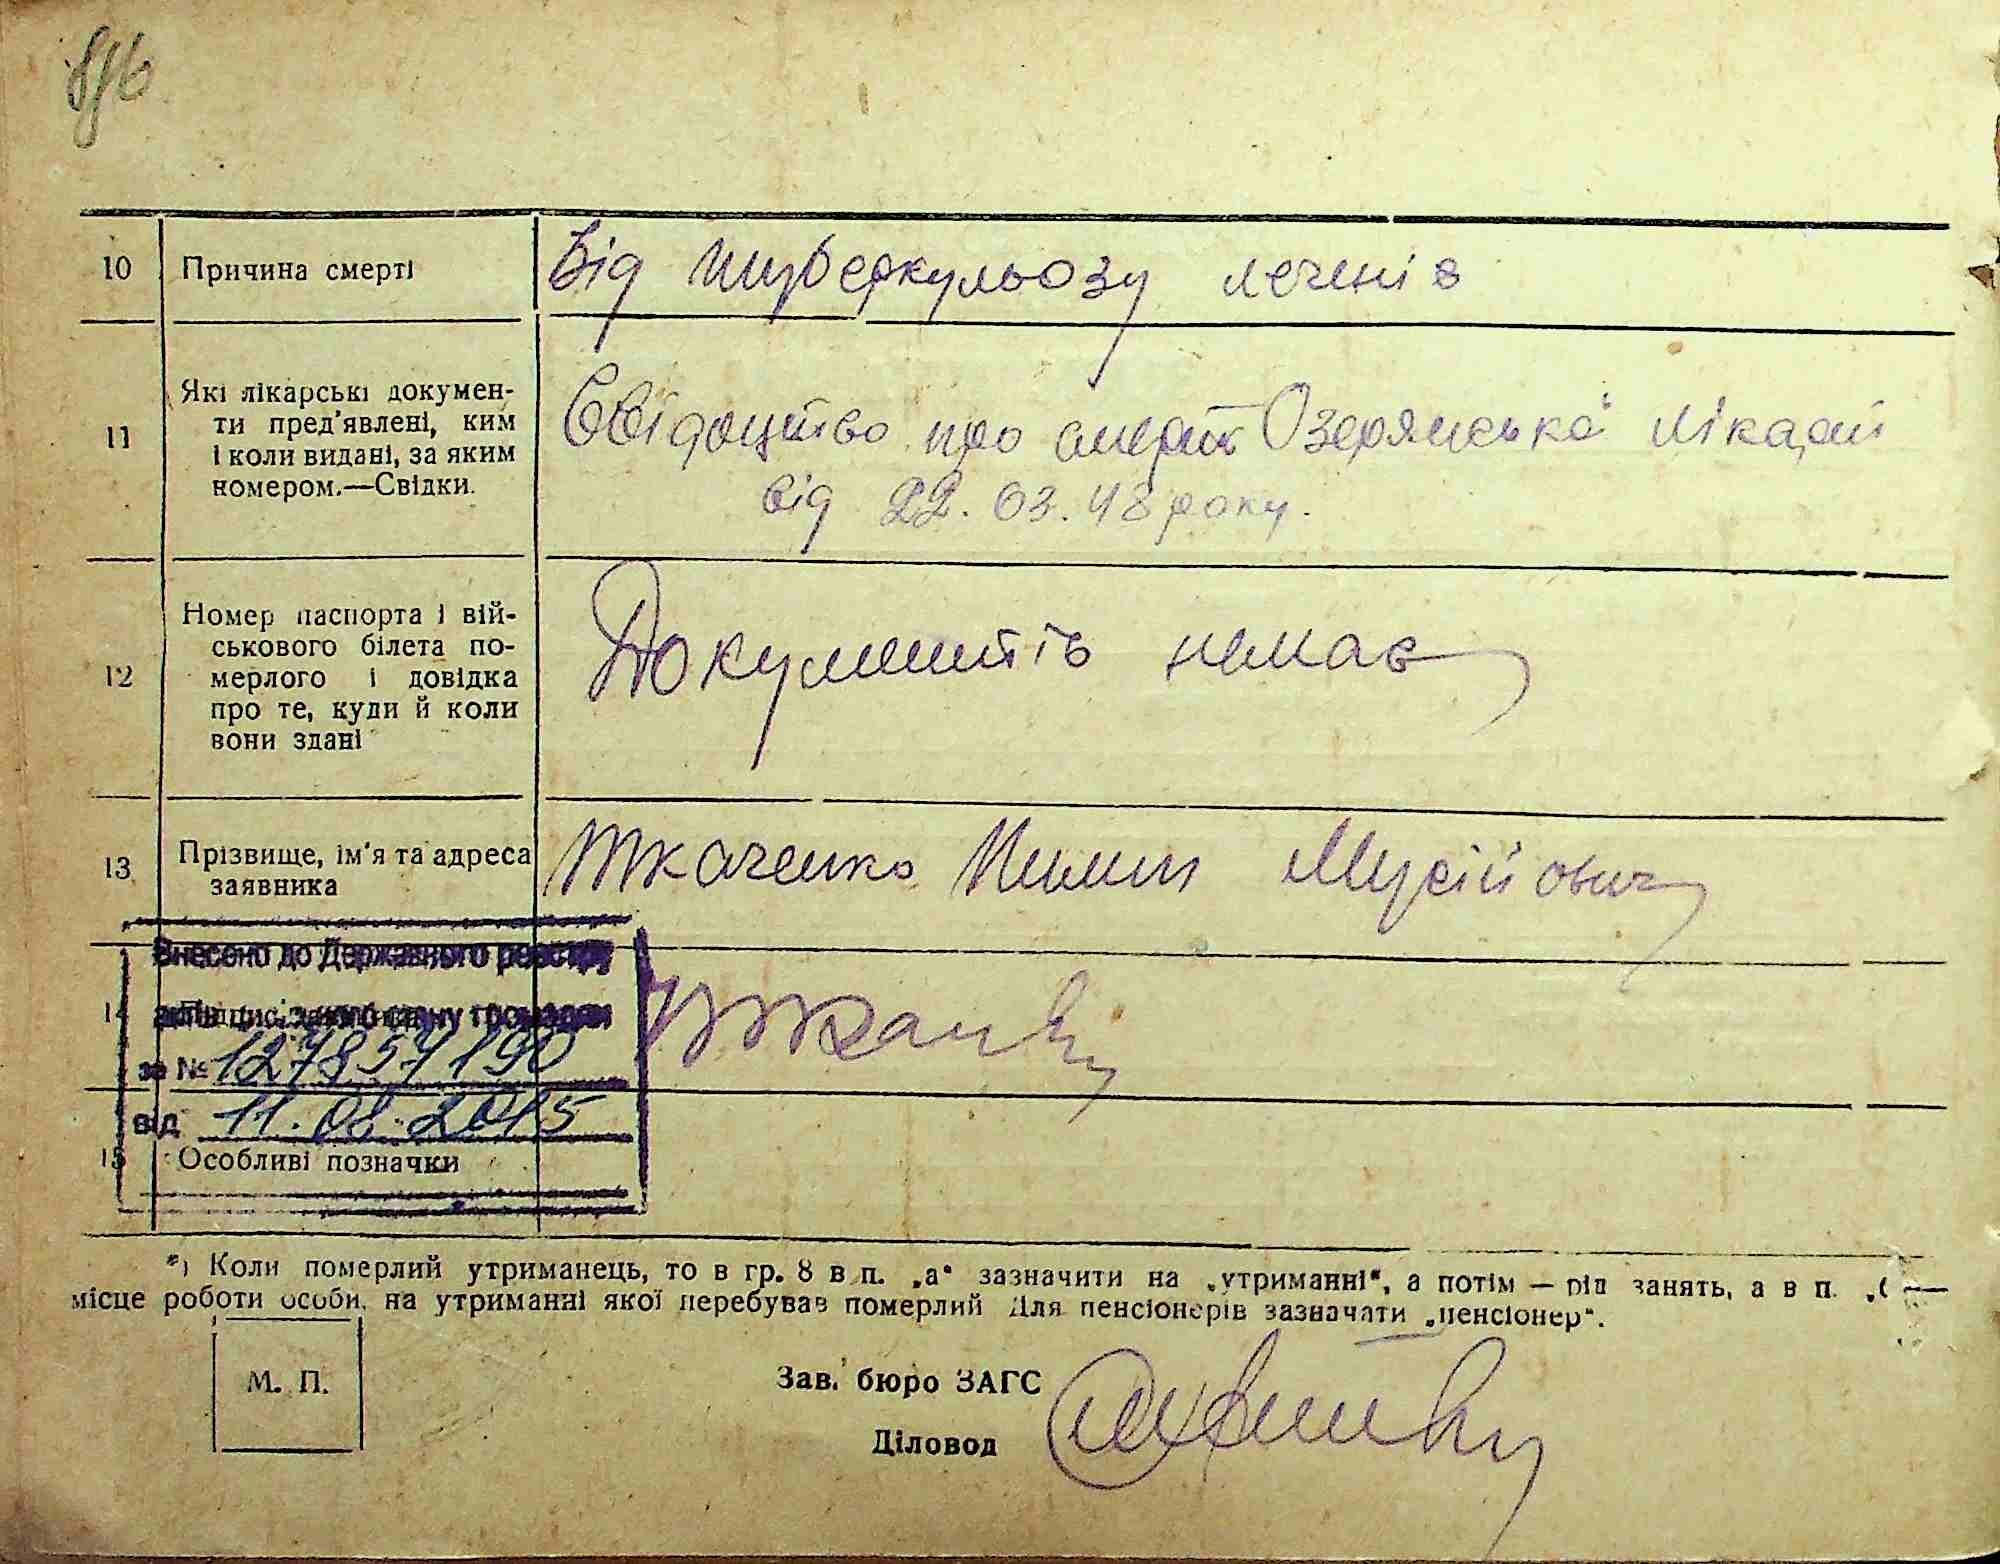 10 Причина смерті Від туберкульозу леченів
11 Які лікарські докумен-
ти пред'явлені, ким
і коли видані, за яким
номером.—Свідки.
Свідоцтво про смерть Озерянської лікарні
від 22.03.48 року.
12 Номер паспорта і вій-
ськового білета по-
мерлого і довідка
про те, куди й коли
вони здані
Документів немає
13 Прізвище, ім'я та адреса
заявника
Ткаченко Пилип Мусійович
Внесено до Державного реєстру
14 актів цивільного стану громадян
за № 127857190
від 11.08.2015
15 Особливі позначки
*) Коли померлий утриманець, то в гр. 8 в п. „а“ зазначити на „утриманні“, а потім — рід занять, а в п.
місце роботи особи, на утриманні якої перебував померлий Для пенсіонерів зазначати „пенсіонер“.
М. П.
Зав. бюро ЗАГС
Діловод